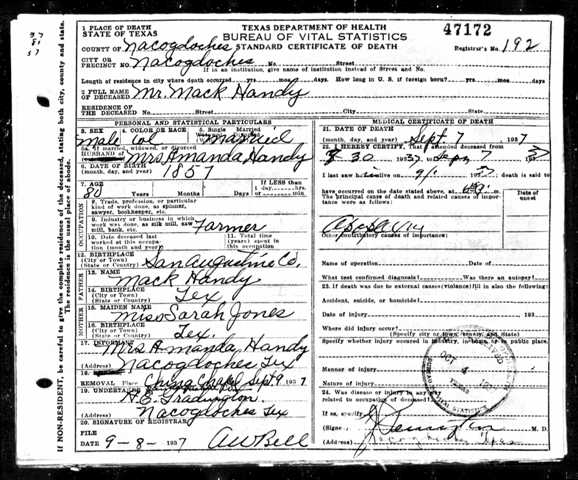 97
81
57
1 PLACE OF DEATH
STATE OF TEXAS
TEXAS DEPARTMENT OF HEALTH
BUREAU OF VITAL STATISTICS
STANDARD CERTIFICATE OF DEATH
47172
COUNTY OF Nacogdoches
Registrar's No. 192
CITY OR
PRECINCT NO. Nacogdoches No. Street
If in an institution, give name of institution instead of Street and No.
Length of residence in city where death occurred yrs. mos. days. How long in U. S. if foreign born? yrs. mos. days
2 FULL NAME
OF DECEASED Mr. Mack Handy
RESIDENCE OF
THE DECEASED No. Street City State
PERSONAL AND STATISTICAL PARTICULARS
3. SEX
Male
4. COLOR OR RACE
Col
5. Single Married
Married
If married, widowed, or divorced
HUSBAND OF Mrs. Amanda Handy
6. DATE OF BIRTH
(month, day, and year) 1857
7. AGE
80 Years Months Days
If LESS than
1 day, hrs.
or min.
OCCUPATION
8. Trade, profession, or particular
kind of work done, as spinner,
sawyer, bookkeeper, etc.
9. Industry or business in which
work was done, as silk mill, saw
mill, bank, etc. Farmer
10. Date deceased last
worked at this occupation
(month and year)
11. Total time
(years) spent in
this occupation
12. BIRTHPLACE
(City or Town)
(State or Country) San Augustine Co.
FATHER
13. NAME
Mack Handy
14. BIRTHPLACE
(City or Town)
(State or Country) Tex
MOTHER
15. MAIDEN NAME
Miss Sarah Jones
16. BIRTHPLACE
(City or Town)
(State or Country) Tex.
17. INFORMANT
Mrs Amanda, Handy
(Address) Nacogdoches Tex
18.
REMOVAL Place Sept 9, 1937
19. UNDERTAKER
Nacogdoches Tex
20. SIGNATURE OF REGISTRAR
FILE
DATE 9-8- 1937 AW Bell
MEDICAL CERTIFICATE OF DEATH
21. DATE OF DEATH
(month, day, and year) Sept 7 1937
22. I HEREBY CERTIFY, That I attended deceased from
8 30 1937 Sep 7 37
I last saw h alive on 9/ 1937 death is said to
have occurred on the date stated above, at m.
The principal cause of death and related causes of importance
were as follows:
Date of onset
Other contributory causes of importance:
Name of operation Date of
What test confirmed diagnosis? Was there an autopsy?
23. If death was due to external causes (violence) fill in also the following:
Accident, suicide, or homicide?
Date of injury 19
Where did injury occur?
(Specify city or town, county and State)
Specify whether injury occurred in industry, in home, or in public place.
Manner of injury
Nature of injury
24. Was disease or injury in any way
related to occupation of deceased?
If so, specify
(Signed) M. D.
(Address) Nacogdoches Texas
RECEIVED
OCT 4 1937
TEXAS
VITAL STATISTICS
If NON-RESIDENT, be careful to give the complete residence of the deceased, stating both city, county and state.
The residence is the usual place of abode.